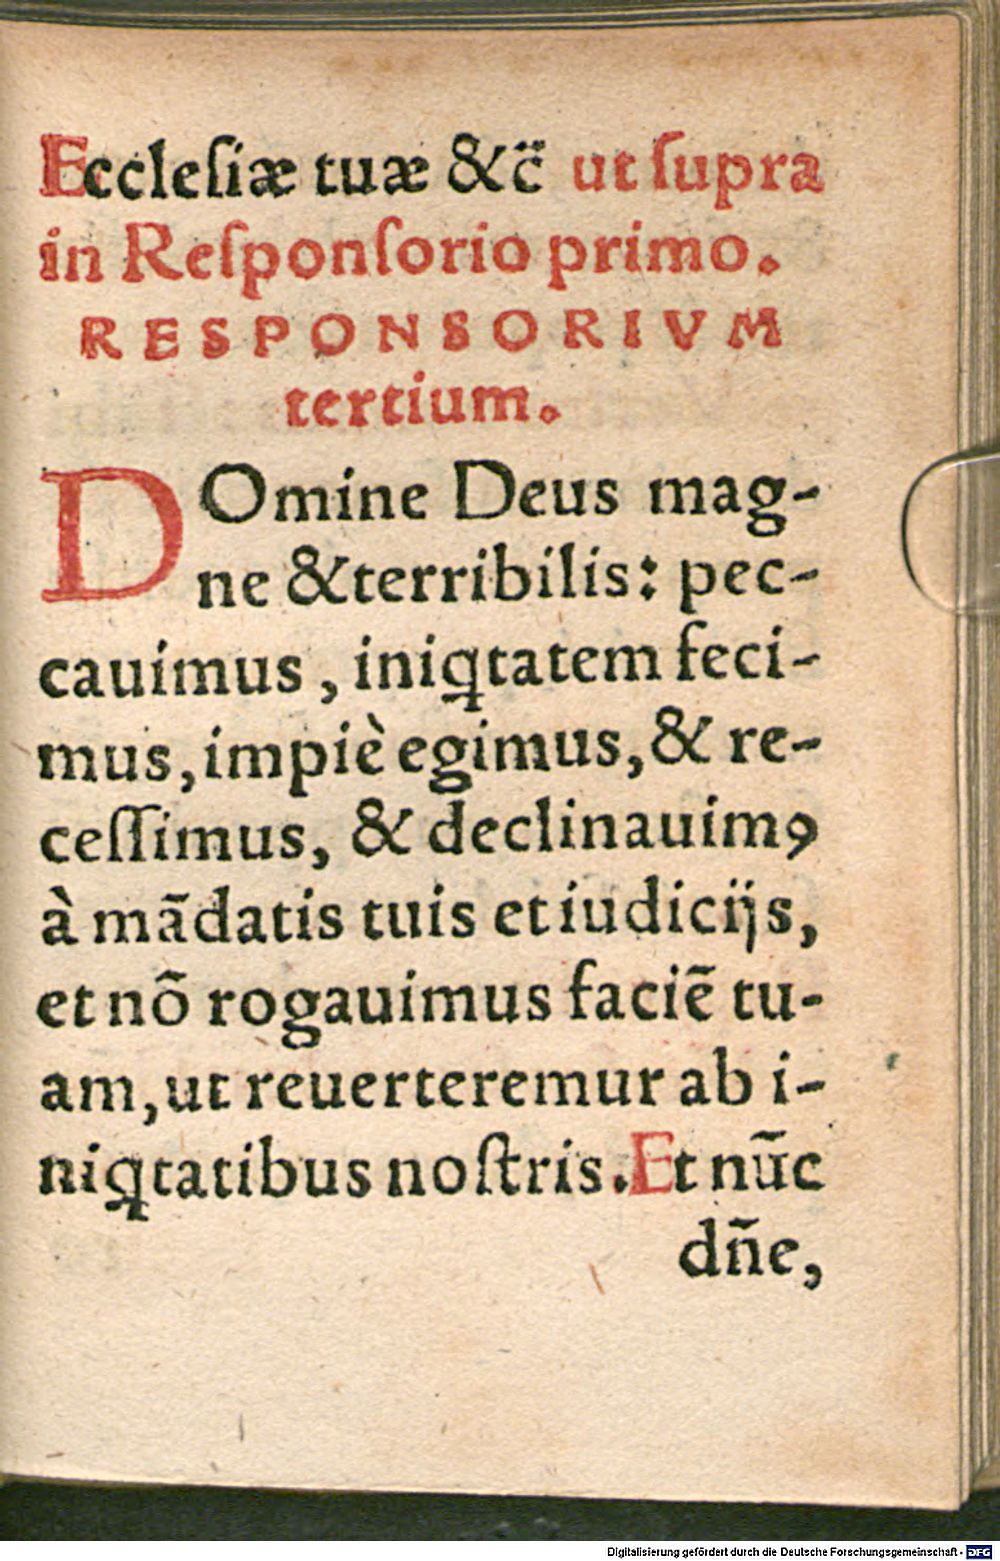 Eccleſiæ tuæ &c̈ ut ſupra
in Reſponſorio primo.
RESPONSORIVM
tertium.
DOmine Deus mag-
ne &terribilis: pec-
cauimus, iniꝗtatem feci-
mus, impiè egimus, & re-
ceſſimus, & declinauimꝰ
à mãdatis tuis et iudicijs,
et nõ rogauimus faciẽ tu-
am, ut reuerteremur ab i-
niꝗtatibus noſtris. Et nũc
dñe,
Digitalisierung gefördert durch die Deutsche Forschungsgemeinschaft - DFG